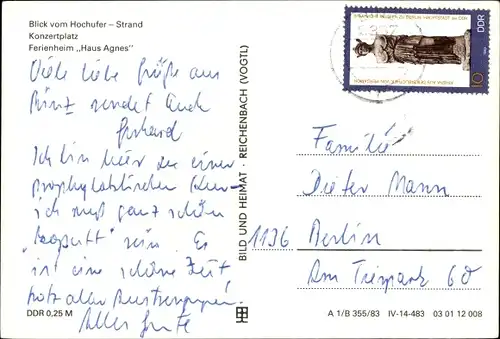 Blick vom Hochufer – Strand
Konzertplatz
Ferienheim „Haus Agnes"
Viele liebe Grüße aus
Binz sendet Euch
Gerhard
Ich bin hier zu einer
prophylaktischen Kur –
ich muß ganz schön
sein. Es
ist eine schöne Zeit
trotz aller Anstrengungen!
Alles Gute
DDR 0,25 M
BILD UND HEIMAT · REICHENBACH (VOGTL)
DDR
10
Familie
Dieter Mann
1136 Berlin
Am Tierpark 60
A 1/B 355/83 IV-14-483 03 01 12 008